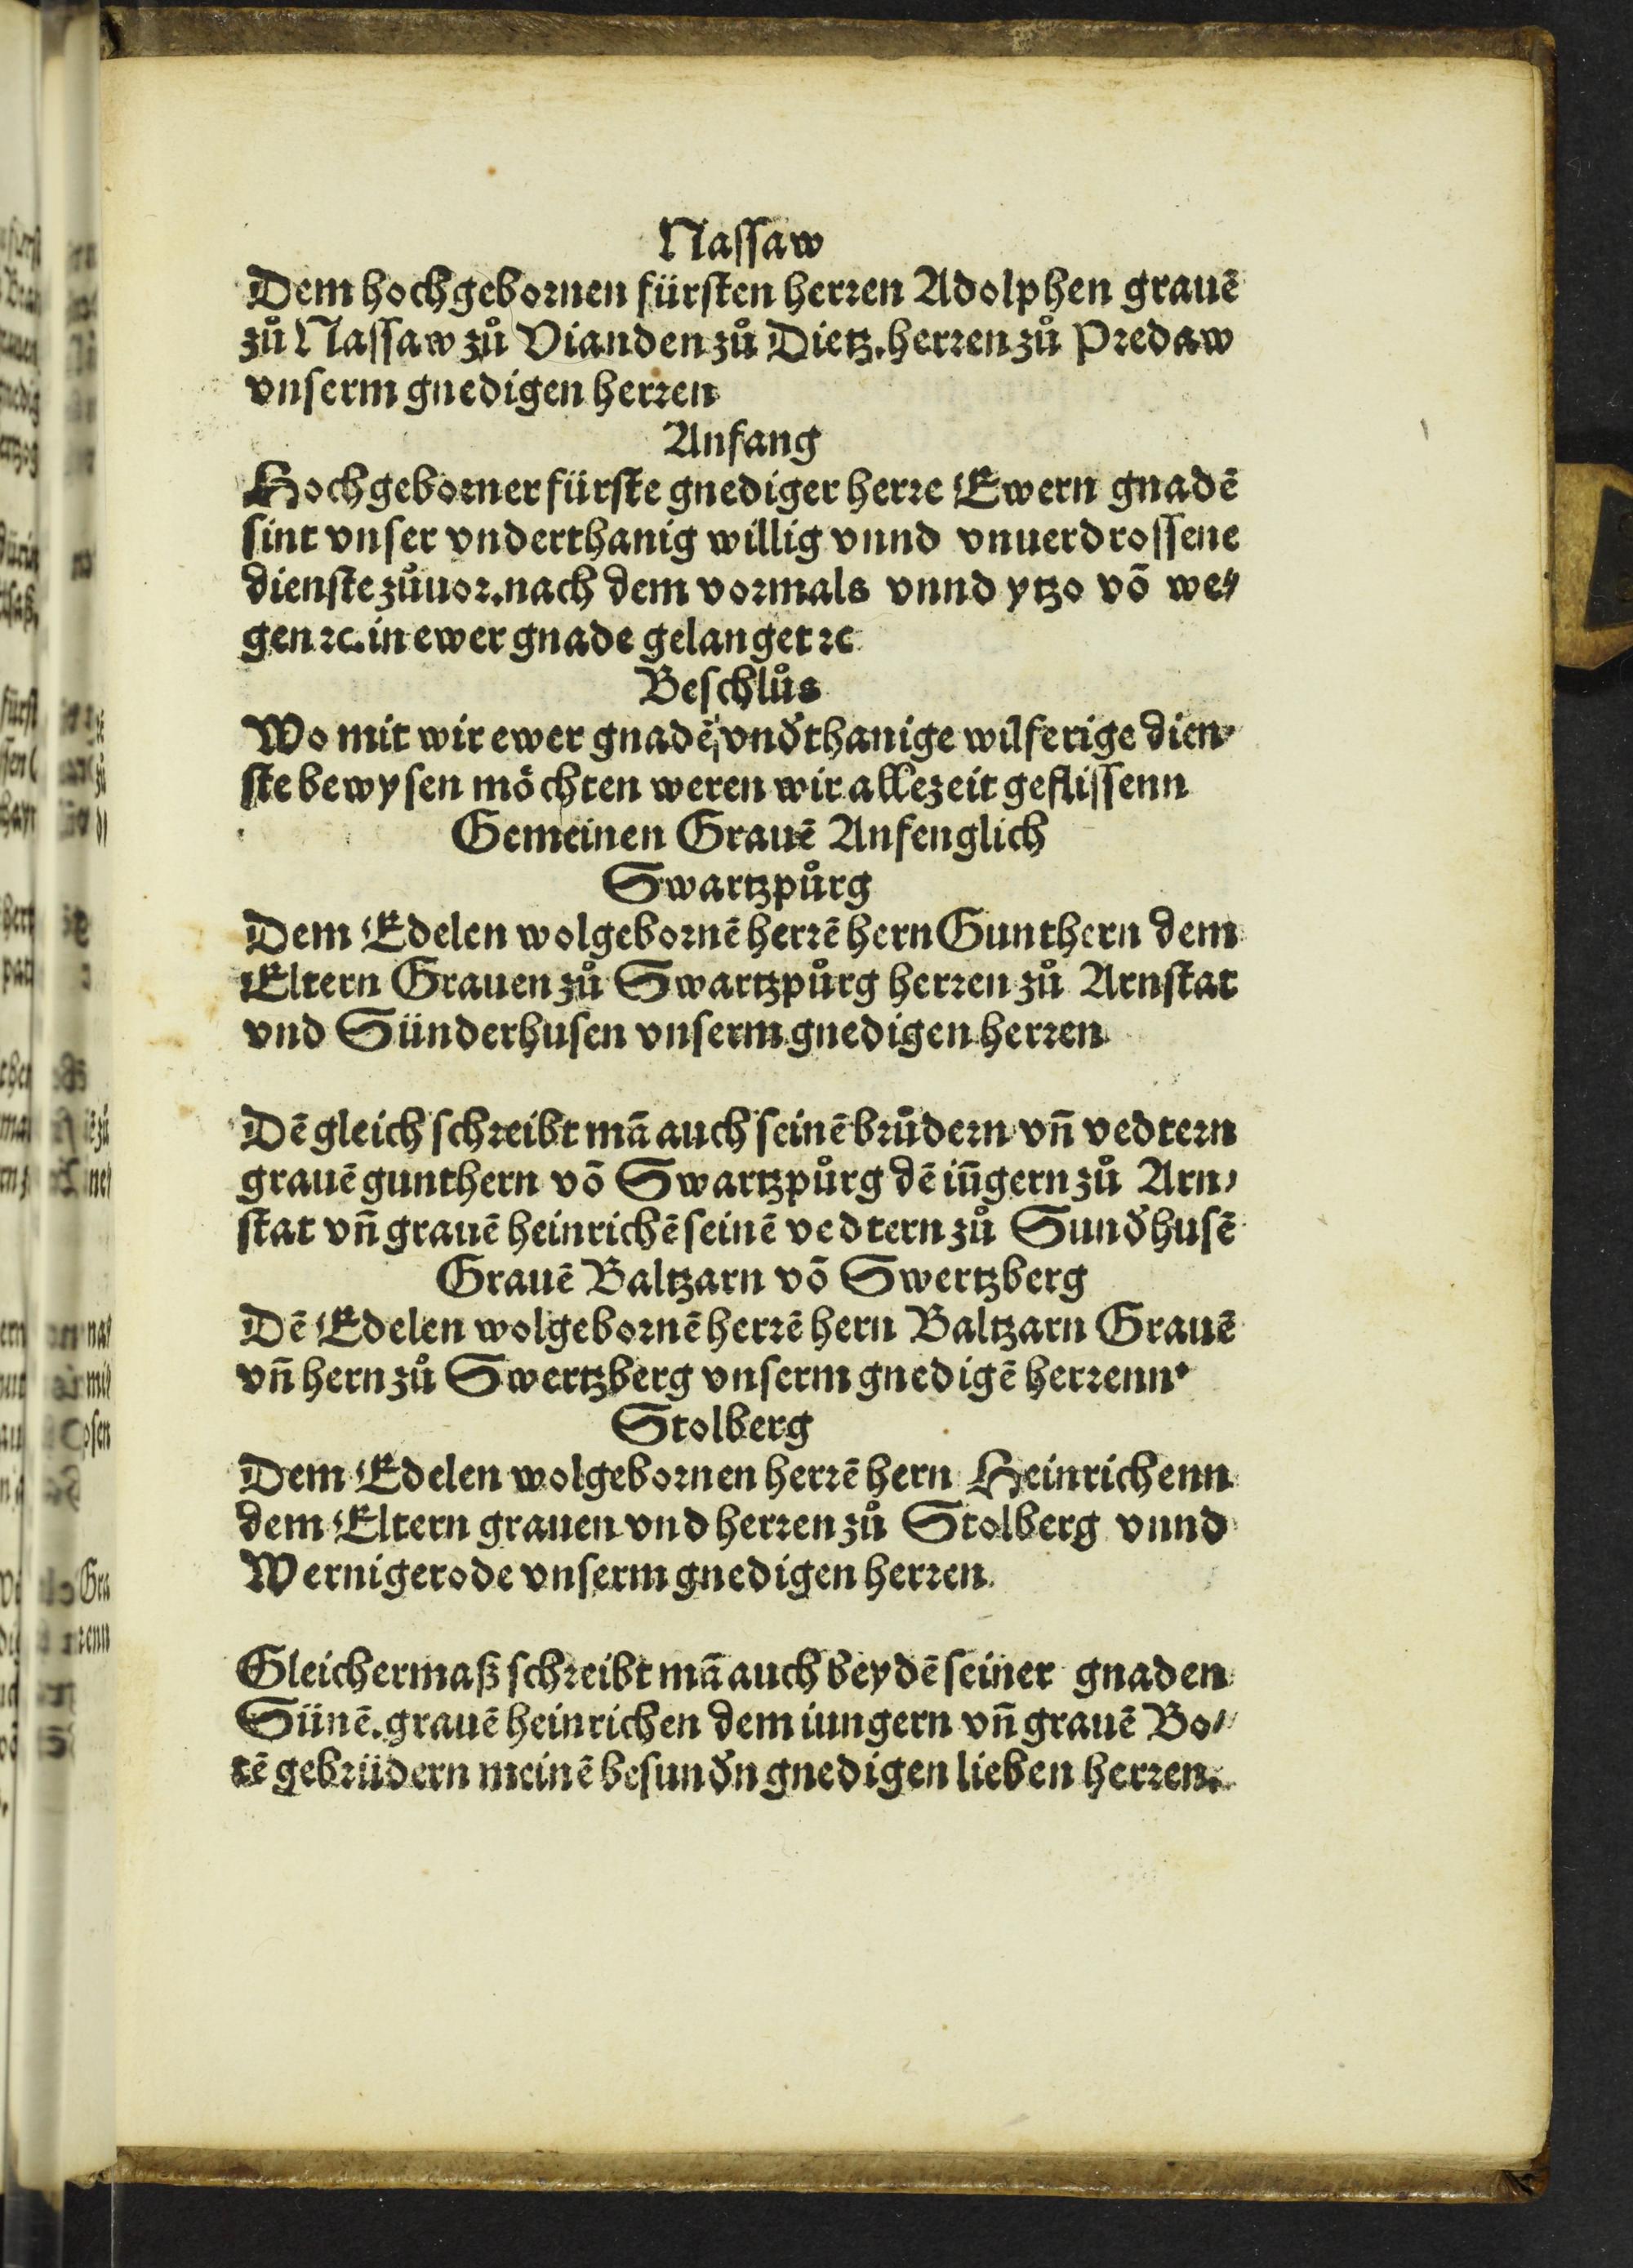 Nassaw
Dem hochgebornen fürsten herren Adolphen grauē
zů Nassaw zů Vianden zů Dietz. herren zů Predaw
vnserm gnedigen herren
Anfang
Hochgeborner fürste gnediger herre Ewern gnadē
sint vnser vnderthanig willig vnnd vnuerdrossene
dienste zůuor. nach dem vormals vnnd ytzo vō we⸗
gen ꝛc. in ewer gnade gelanget ꝛc
Beschlůs
Wo mit wir ewer gnadē vnd̓thanige wilferige dien⸗
ste bewysen möchten weren wir allezeit geflissenn
Gemeinen Grauē Anfenglich
Swartzpůrg
Dem Edelen wolgebornē herrē hern Gunthern dem
Eltern Grauen zů Swartzpůrg herren zů Arnstat
vnd Sünderhusen vnserm gnedigen herren
Dē gleich schreibt mā auch seinē brůdern vn̄ vedtern
grauē gunthern vō Swartzpůrg dē iun̄gern zů Arn⸗
stat vn̄ grauē heinrichē seinē vedtern zů Sund̓husē
Grauē Baltzarn vō Swertzberg
Dē Edelen wolgebornē herrē hern Baltzarn Grauē
vn̄ hern zů Swertzberg vnserm gnedigē herrenn.
Stolberg
Dem Edelen wolgebornen herrē hern Heinrichenn
dem Eltern grauen vnd herren zů Stolberg vnnd
Wernigerode vnserm gnedigen herren.
Gleichermaß schreibt mā auch beydē seiner gnaden
Sünē. grauē heinrichen dem iungern vn̄ grauē Bo⸗
tē gebrüdern meinē besund̓n gnedigen lieben herren.